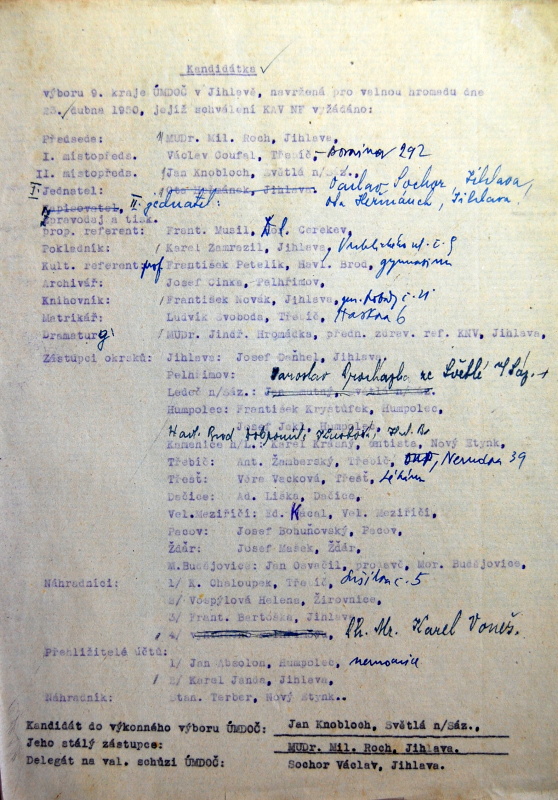 Kandidátka ✓
výboru 9. kraje ÚMDOČ v Jihlavě, navržená pro valnou hromadu dne
23. dubna 1950, jejíž schválení KAV NF vyžádáno:
Předseda: MUDr. Mil. Roch, Jihlava,
I. místopředs. Václav Coufal, Třebíč, - Domina 292
II. místopředs. Jan Knobloch, Světlá n/Sáz.,
I. Jednatel: Jihlava. Václav Sochor, Jihlava,
Zapisovatel, II. jednatel: Ota Heřmánek, Jihlava
Zpravodaj a tisk.
prop. referent: Frant. Musil, Dol. Cerekev,
Pokladník: Karel Zamrazil, Jihlava, č. 9
Kult. referent: prof František Petelík, Havl. Brod, gymnasium
Archivář: Josef Cinka, Pelhřimov,
Knihovník: František Novák, Jihlava, gen. Svobody č. 11
Matrikář: Ludvík Svoboda, Třebíč, Hasskova 6
Dramaturg: MUDr. Jindř. Hromádka, předn. zdrav. ref. KNV, Jihlava,
Zástupci okrsků: Jihlava: Josef Daňhel, Jihlava,
Pelhřimov:
Jaroslav Procházka ze Světlé n/Sáz. +
Ledeč n/Sáz.: Světlá n/Sáz.
Humpolec: František Krystůfek, Humpolec,
Josef Jekl, Humpolec
Havl. Brod
Kamenice n/L.: Karel Krásný, dntista, Nový Etynk,
Třebíč: Ant. Žamberský, Třebíč, Nerudova 39
Třešť: Věra Vacková, Třešť, lékárna
Dačice: Ad. Liška, Dačice,
Vel.Meziříčí: Ed. Kácal, Vel. Meziříčí,
Pacov: Josef Bohuňovský, Pacov,
Žďár: Josef Mašek, Žďár,
M.Budějovice: Jan Osvačil, Mor. Budějovice,
Náhradníci: 1/ K. Chaloupek, Třebíč, č. 5
2/ Vospylová Helena, Žirovnice,
3/ Frant. Bartůška, Jihlava
4/ Ph. Mr. Karel Voneš.
Přehlížitelé účtů:
1/ Jan Absolon, Humpolec, nemocnice
2/ Karel Janda, Jihlava,
Náhradník: Stan. Terber, Nový Etynk..
Kandidát do výkonného výboru ÚMDOČ: Jan Knobloch, Světlá n/Sáz.,
Jeho stálý zástupce: MUDr. Mil. Roch, Jihlava.
Delegát na val. schůzi ÚMDOČ: Sochor Václav, Jihlava.